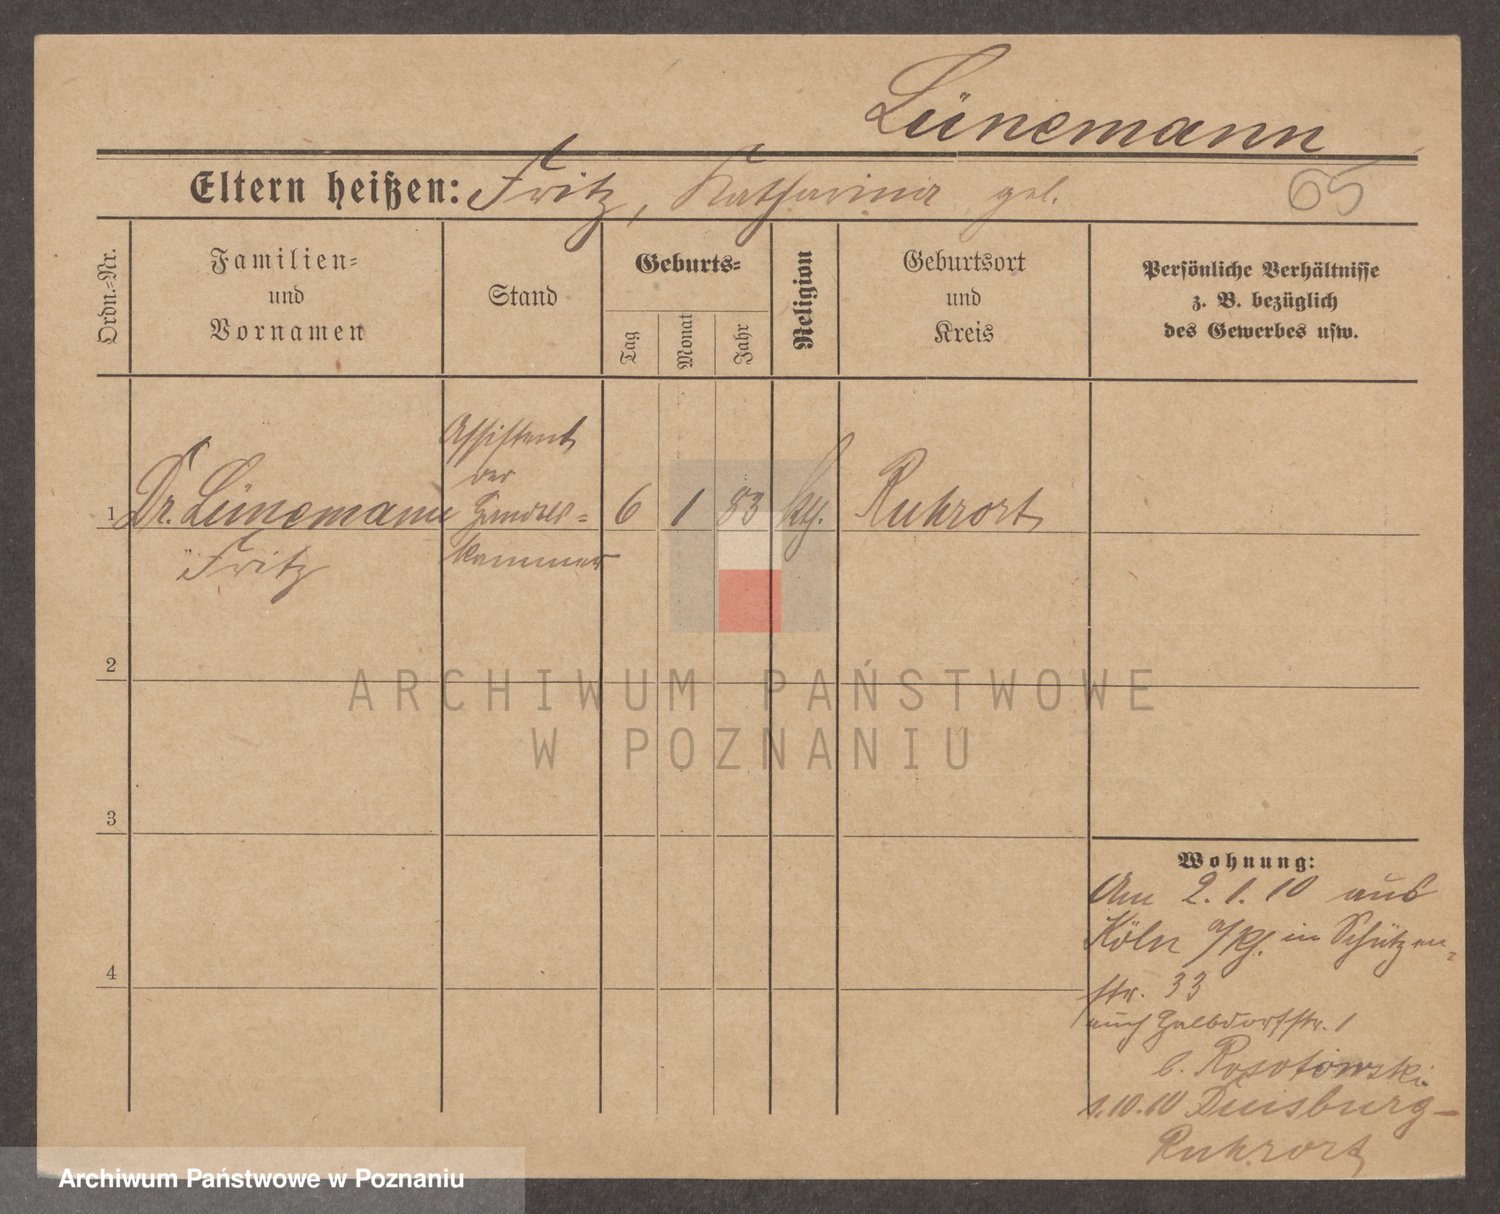 Lünemann
Eltern heißen: Fritz, Katharina geb.
65
Ordn.-Nr.
Familien-
und
Vornamen
Stand
Geburts-
Tag
Monat
Jahr
Religion
Geburtsort
und
Kreis
Persönliche Verhältnisse
z. B. bezüglich
des Gewerbes usw.
1
Dr. Lünemann
Fritz
Assistent
der
Handels-
kammer
6
1
83
Ruhrort
2
3
4
Wohnung:
Am 2.1.10 aus
Köln a/Rh. in Schützen-
str. 33
auch Halbdorfstr. 1
b.
1.10.10 Duisburg-
Ruhrort
ARCHIWUM PAŃSTWOWE
W POZNANIU
Archiwum Państwowe w Poznaniu